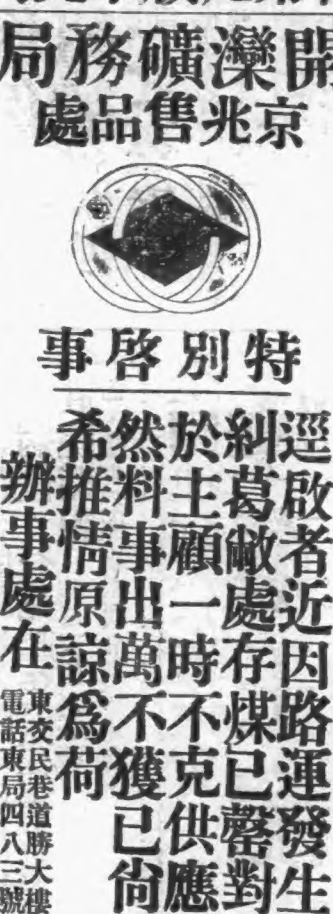 開灤礦務局
京兆售品處
特別啓事
逕啟者近因路運發生
糾葛敝處存煤已罄對
於主顧一時不克供應
然料事出萬不獲已尙
希推情原諒爲荷
辦事處在
東交民巷道勝大樓
電話東局四八三號